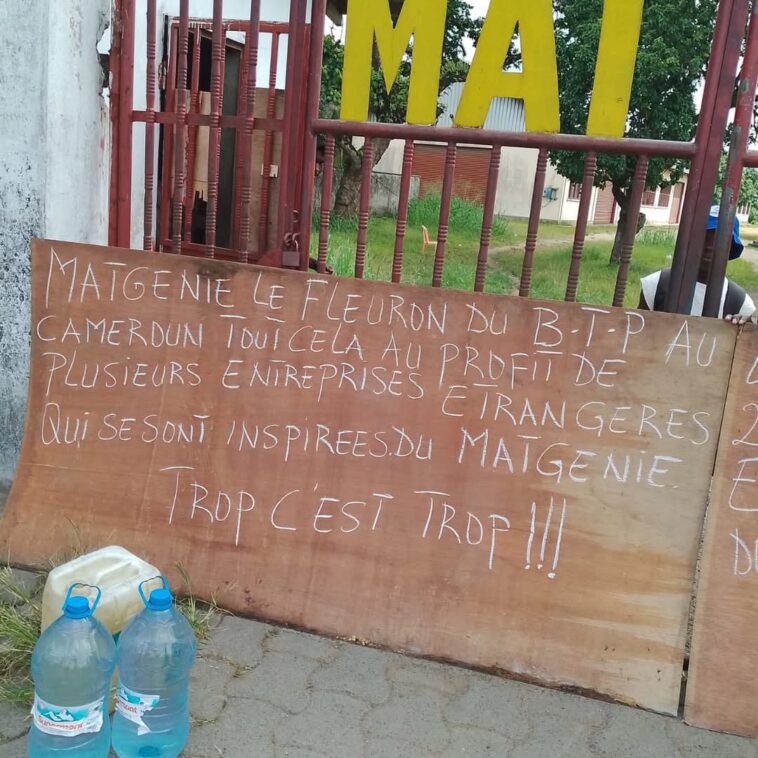 MAI
MATGENIE LE FLEURON DU B-T-P AU
CAMEROUN TOUT CELA AU PROFIT DE
PLUSIEURS ENTREPRISES ETRANGERES
QUI SE SONT INSPIREES.DU MATGENIE.
TROP C'EST TROP !!!
2
E
DU